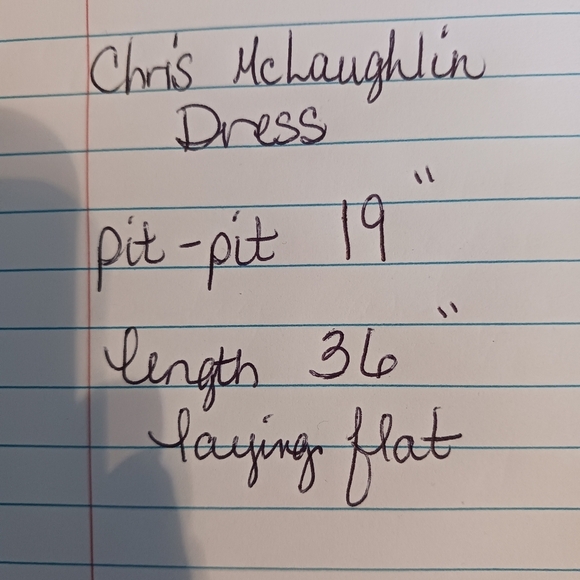 Chris McLaughlin
Dress
pit-pit 19"
length 36"
laying flat